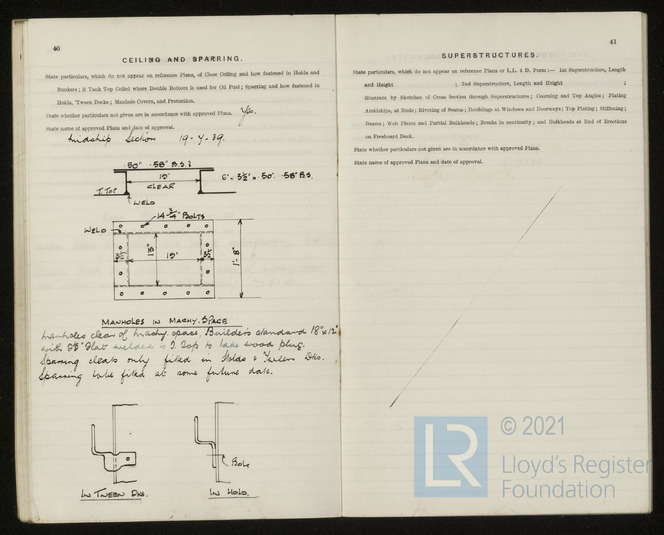 40
CEILING AND SPARRING.
State particulars, which do not appear on reference Plans, of Close Ceiling and how fastened in Holds and
Bunkers; if Tank Top Ceiled where Double Bottom is used for Oil Fuel; Sparring and how fastened in
Holds, 'Tween Decks; Manhole Covers, and Protection.
State whether particulars not given are in accordance with approved Plans. Yes.
State name of approved Plans and date of approval.
Midship Section 19-4-39.
.50" .58" B.S.
15"
CLEAR
6" × 3½" × .50" .58" B.S.
T. TOP
WELD
14 - ¾" BOLTS
WELD
15"
1'-8"
MANHOLES IN MACHY. SPACE
Manholes clear of machy. space, Builders standard 18" x 12"
with Flat welded to T. Top to take wood plug.
Sparring cleats only fitted in Holds & Tween Dks.
Sparring to be fitted at some future date.
IN TWEEN DKS.
Hole
IN HOLD.
41
SUPERSTRUCTURES.
State particulars, which do not appear on reference Plans or L.L. 4 D. Form:— 1st Superstructure, Length
and Height ; 2nd Superstructure, Length and Height ;
Illustrate by Sketches of Cross Section through Superstructures; Coaming and Top Angles; Plating
Amidships, at Ends; Riveting of Seams; Doublings at Windows and Doorways; Top Plating; Stiffening;
Beams; Web Plates and Partial Bulkheads; Breaks in continuity; and Bulkheads at End of Erections
on Freeboard Deck.
State whether particulars not given are in accordance with approved Plans.
State name of approved Plans and date of approval.
LR
© 2021
Lloyd's Register
Foundation